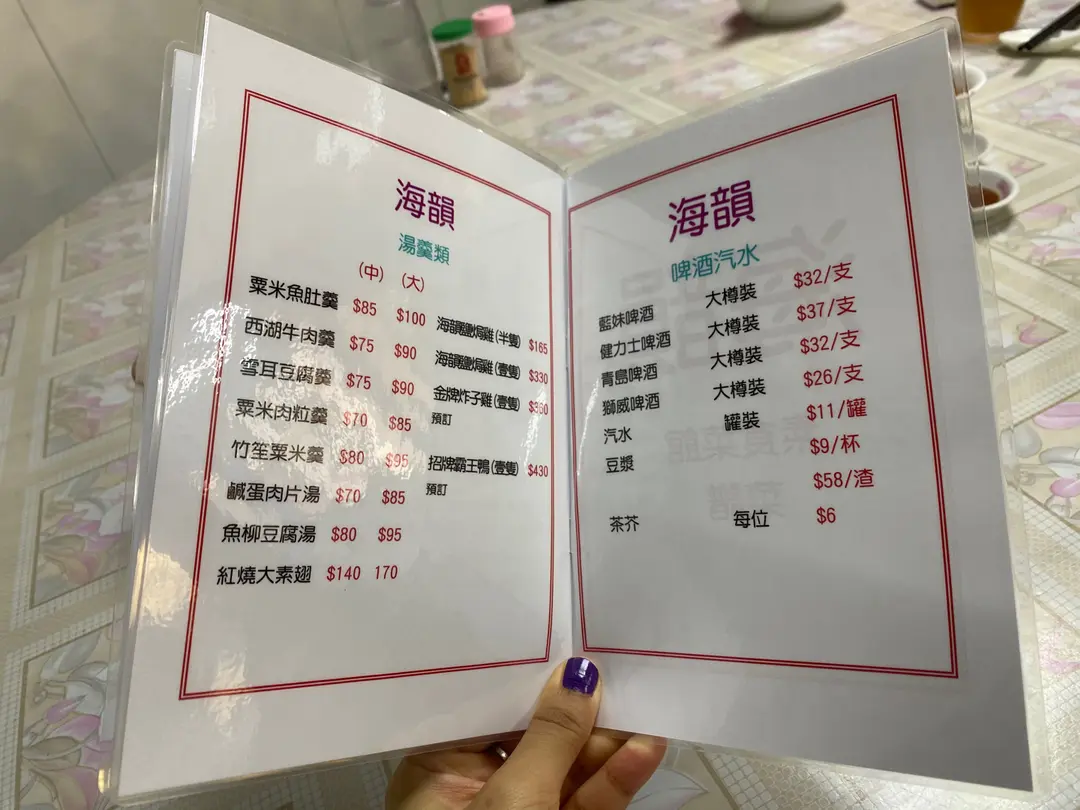 海韻
湯羹類
(中) (大)
粟米魚肚羹 $85 $100
西湖牛肉羹 $75 $90
雪耳豆腐羹 $75 $90
粟米肉粒羹 $70 $85
竹笙粟米羹 $80 $95
鹹蛋肉片湯 $70 $85
魚柳豆腐湯 $80 $95
紅燒大素翅 $140 170
海韻鹽焗雞(半隻) $165
海韻鹽焗雞(壹隻) $330
金牌炸子雞(壹隻) $360
預訂
招牌霸王鴨(壹隻) $430
預訂
海韻
啤酒汽水
藍妹啤酒 大樽裝 $32/支
健力士啤酒 大樽裝 $37/支
青島啤酒 大樽裝 $32/支
獅威啤酒 大樽裝 $26/支
汽水 罐裝 $11/罐
豆漿 $9/杯
$58/渣
茶芥 每位 $6